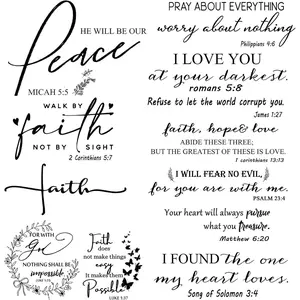 HE WILL BE OUR
Peace
MICAH 5:5
WALK BY
faith
NOT BY SIGHT
2 Corinthians 5:7
faith
FOR WITH
God
NOTHING SHALL BE
impossible
LUKE 1:37
Faith
does
not make things
easy
It makes them
Possible
LUKE 1:37
PRAY ABOUT EVERYTHING
worry about nothing
Philippians 4:6
I LOVE YOU
at your darkest.
romans 5:8
Refuse to let the world corrupt you.
James 1:27
faith, hope& love
ABIDE THESE THREE;
BUT THE GREATEST OF THESE IS LOVE.
1 corinthians 13:13
I WILL FEAR NO EVIL,
for you are with me.
PSALM 23:4
Your heart will always pursue
what you treasure.
Matthew 6:20
I FOUND the one
my heart loves.
Song of Solomon 3:4